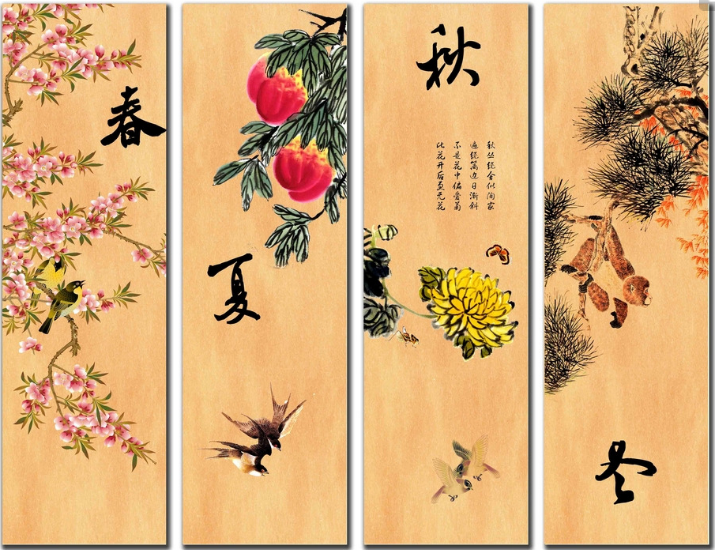 春
夏
秋
秋丛绕舍似陶家
遍绕篱边日渐斜
不是花中偏爱菊
此花开后更无花
冬